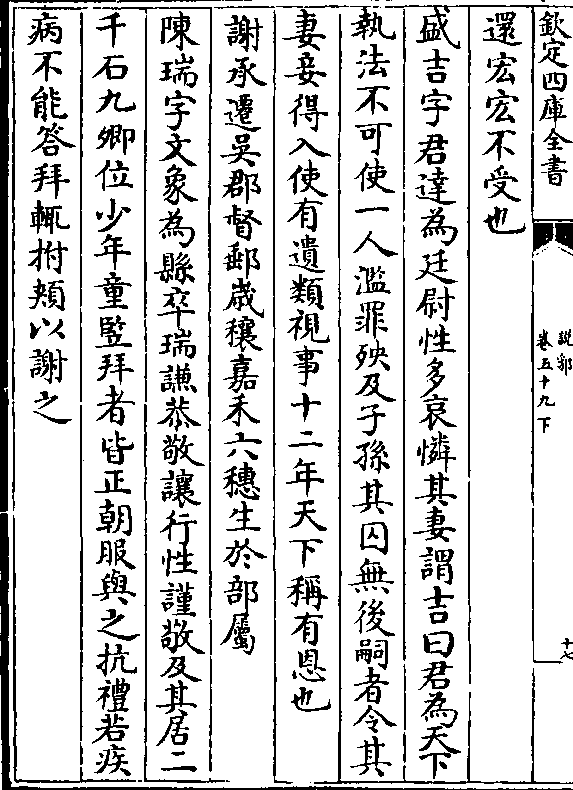 欽定四庫全書
說郛
卷五十九下
十七
還宏宏不受也
盛吉字君達為廷尉性多哀憐其妻謂吉曰君為天下
執法不可使一人濫罪殃及子孫其囚無後嗣者令其
妻妾得入使有遺類視事十二年天下稱有恩也
謝承遷吳郡督郵歳穰嘉禾六穗生於部屬
陳瑞字文象為縣卒瑞謙恭敬讓行性謹敬及其居二
千石九卿位少年童豎拜者皆正朝服與之抗禮若疾
病不能答拜輒拊頰以謝之